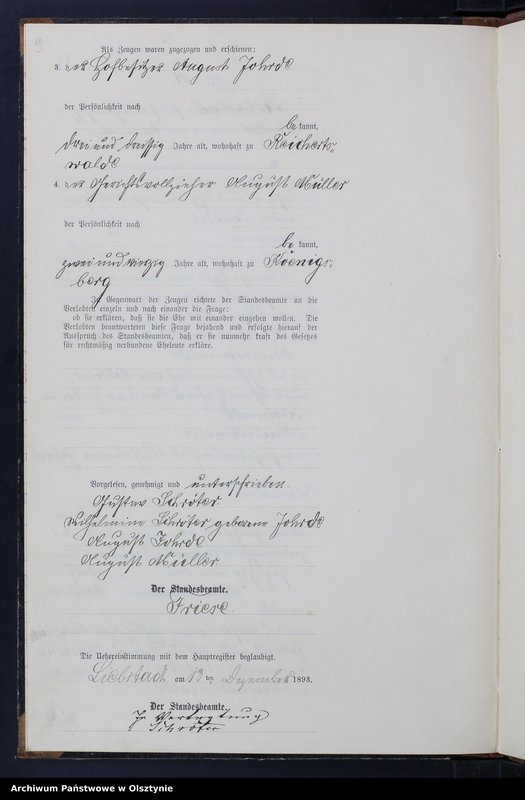 9
Als Zeugen waren zugezogen und erschienen:
3. der Hofbesitzer August Johrde
der Persönlichkeit nach
be kannt,
drei und dreissig Jahre alt, wohnhaft zu Reicherts-
walde
4. der Gerichtsvollzieher August Müller
der Persönlichkeit nach
be kannt,
zwei und vierzig Jahre alt, wohnhaft zu Koenigs-
berg
In Gegenwart der Zeugen richtete der Standesbeamte an die
Verlobten einzeln und nach einander die Frage:
ob sie erklären, daß sie die Ehe mit einander eingehen wollen. Die
Verlobten beantworteten diese Frage bejahend und erfolgte hierauf der
Ausspruch des Standesbeamten, daß er sie nunmehr kraft des Gesetzes
für rechtmäßig verbundene Eheleute erkläre.
Vorgelesen, genehmigt und unterschrieben.
Gustav Schröter.
Wilhelmine Schröter geborene Johrde
August Johrde
August Müller
Der Standesbeamte.
Friese
Die Uebereinstimmung mit dem Hauptregister beglaubigt.
Liebstadt am 13 ten Dezember 1893.
Der Standesbeamte.
In Vertretung
Schröter
Archiwum Państwowe w Olsztynie